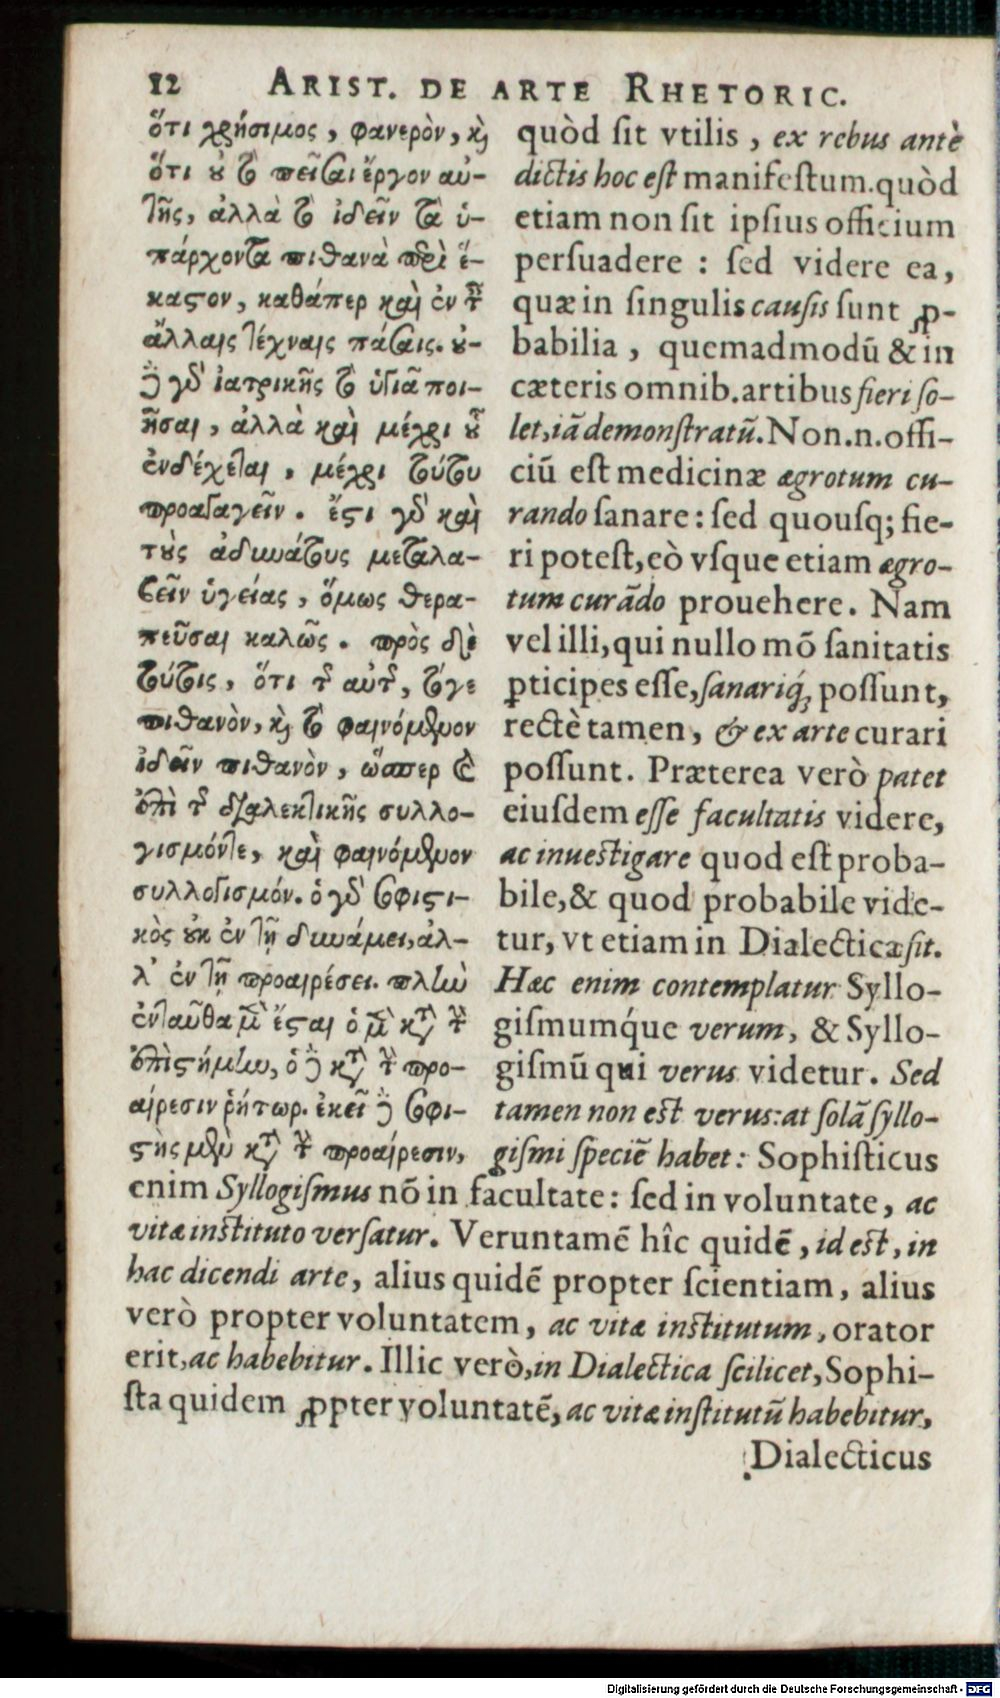 12 ARIST. DE ARTE RHETORIC.
ὅτι χρήσιμος, φανερὸν, κ̀
ὅτι ȣ τὸ πεῖσαι ἔργον αὐ-
τῆς, ἀλλὰ τὸ ἰδεῖν τὰ ὑ-
πάρχοντα πιθανὰ περὶ ἕ-
καστον, καθάπερ καὶ ἐν τ
ἄλλαις τέχναις πάσαις. ȣ-
δὲ γδ ἰατρικῆς τὸ ὑγιᾶ ποι-
ῆσαι, ἀλλὰ καὶ μέχρι ȣ̃
ἐνδέχεται, μέχρι τούτου
προαγαγεῖν. ἔστι γδ καὶ
τοὺς ἀδυνάτους μεταλα-
βεῖν ὑγείας, ὅμως θερα-
πεῦσαι καλῶς. πρὸς δὲ
τούτοις, ὅτι τ αὐτ, τό γε
πιθανὸν, κ̀ τὸ φαινόμενον
ἰδεῖν πιθανὸν, ὥσπερ ἐ
ἐπὶ τ διαλεκτικῆς συλλο-
γισμόντε, καὶ φαινόμενον
συλλογισμόν. ὁ γδ σοφιστι-
κὸς ȣκ ἐν τῇ δυνάμει, ἀλ-
λ' ἐν τῇ προαιρέσει. πλὴν
ἐνταῦθα μ ἔσται ὁ μ κτ τ
ἐπιστήμην, ὁ δὲ κτ τ προ-
αίρεσιν ῥήτωρ. ἐκεῖ δὲ σοφι-
στὴς μὲν κτ τ προαίρεσιν,
quòd ſit vtilis, ex rebus antè
dictis hoc eſt manifeſtum. quòd
etiam non ſit ipſius officium
perſuadere: ſed videre ea,
quæ in ſingulis cauſis ſunt ꝓ-
babilia, quemadmodũ & in
cæteris omnib. artibus fieri ſo-
let, iã demonſtratũ. Non .n. offi-
ciũ eſt medicinæ ægrotum cu-
rando ſanare: ſed quouſq; fie-
ri poteſt, eò vſque etiam ægro-
tum curãdo prouehere. Nam
vel illi, qui nullo mõ ſanitatis
ꝑticipes eſſe, ſanariq́; poſſunt,
rectè tamen, & ex arte curari
poſſunt. Præterea verò patet
eiuſdem eſſe facultatis videre,
ac inueſtigare quod eſt proba-
bile, & quod probabile vide-
tur, vt etiam in Dialectica ſit.
Hæc enim contemplatur Syllo-
giſmumq́ue verum, & Syllo-
giſmũ qui verus videtur. Sed
tamen non eſt verus: at ſolã ſyllo-
giſmi ſpeciẽ habet: Sophiſticus
enim Syllogiſmus nõ in facultate: ſed in voluntate, ac
vitæ inſtituto verſatur. Veruntamẽ hîc quidẽ, id eſt, in
hac dicendi arte, alius quidẽ propter ſcientiam, alius
verò propter voluntatem, ac vitæ inſtitutum, orator
erit, ac habebitur. Illic verò, in Dialectica ſcilicet, Sophi-
ſta quidem ꝓpter voluntatẽ, ac vitæ inſtitutũ habebitur,
Dialecticus
Digitalisierung gefördert durch die Deutsche Forschungsgemeinschaft - DFG